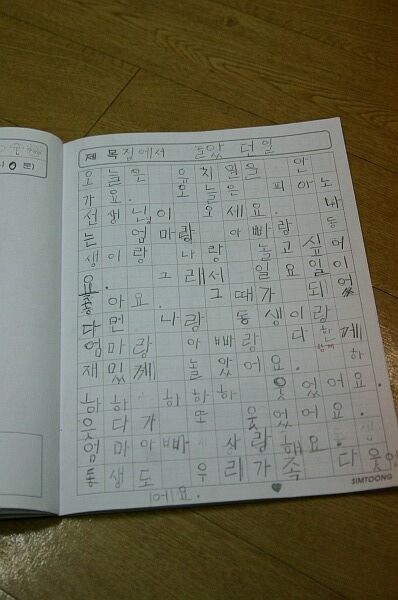 제 목 집에서 놀았 던일
오늘은 유치원을 안
가요. 오늘은 피아노
선생님이 오세요. 나
는 엄마랑 아빠랑 동
생이랑 나랑 놀고 싶어
요. 그래서 일요일이
좋아요. 그때가 되
다면 나랑 동생이랑
엄마랑 아빠랑 다 한께
함께
재밌게 놀았어요. 하
하하 하하하 웃었어요.
웃다가 또 웃었어요.
엄마아빠 사랑해요.
동생도 우리가족 다웃
어요.
SIMTOONG